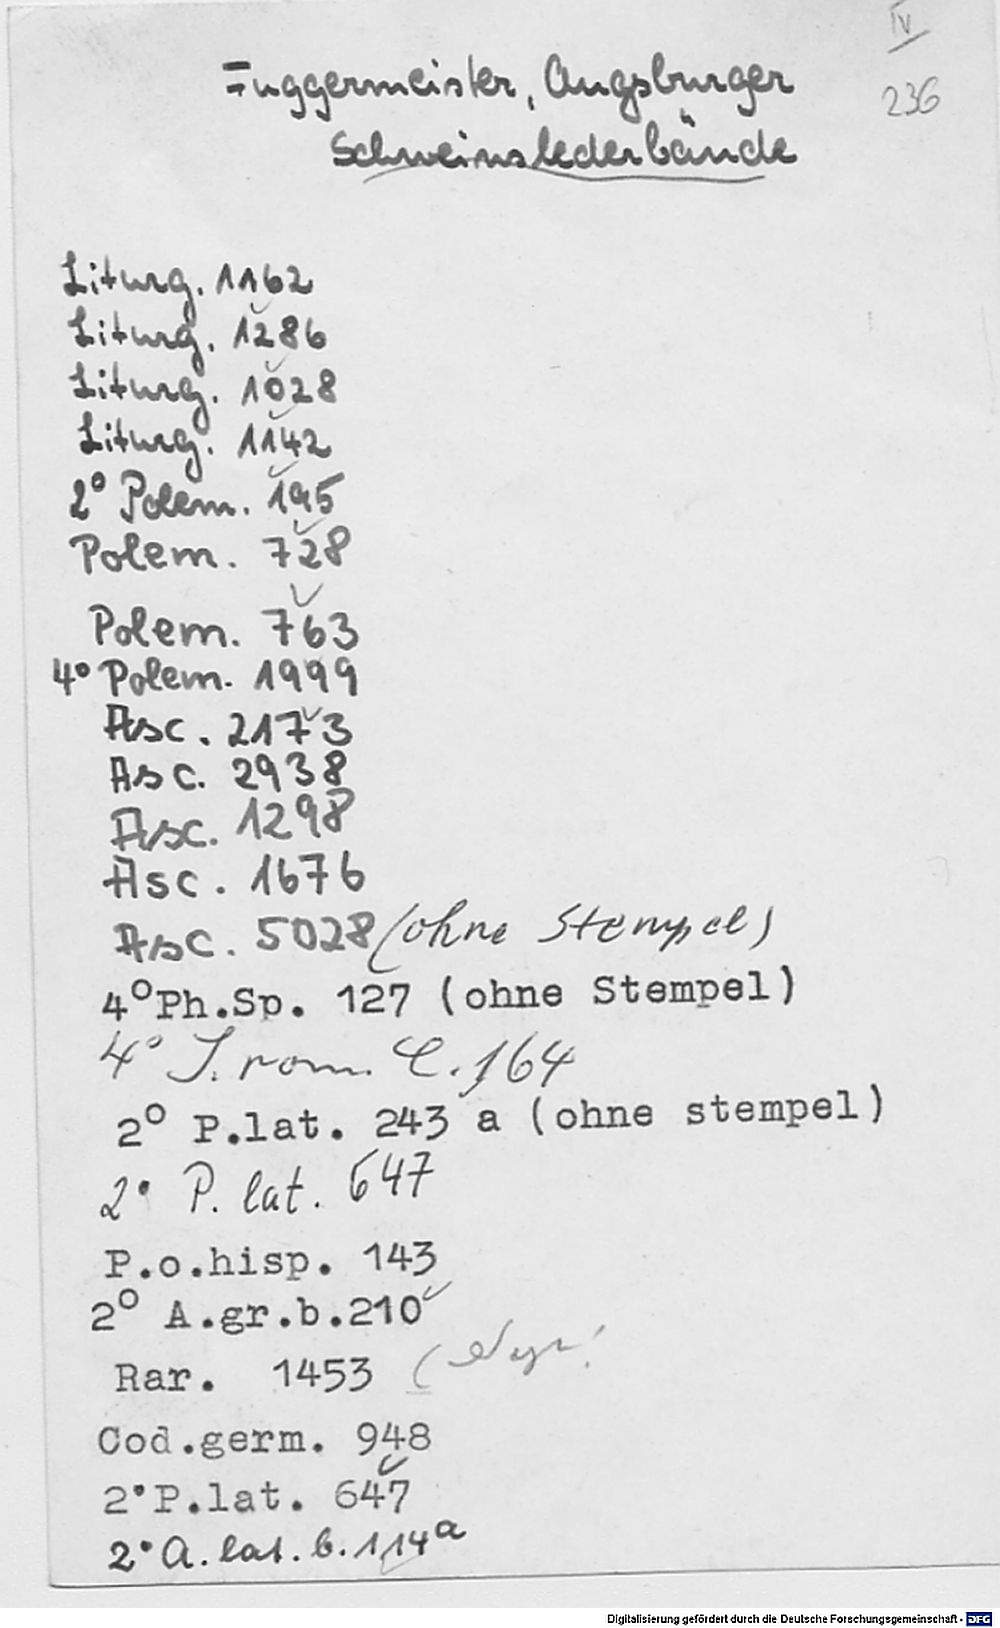 IV
236
Fuggermeister, Augsburger
Schweinslederbände
Liturg. 1162
Liturg. 1286
Liturg. 1028
Liturg. 1142
2° Polem. 195
Polem. 728
Polem. 763
4° Polem. 1999
Asc. 2173
Asc. 2938
Asc. 1298
Asc. 1676
Asc. 5028 (ohne Stempel)
4° Ph.Sp. 127 (ohne Stempel)
4° J. rom. C. 164
2° P.lat. 243 a (ohne stempel)
2° P. lat. 647
P.o.hisp. 143
2° A.gr.b.210
Rar. 1453
Cod.germ. 948
2° P.lat. 647
2° A. lat. b. 114a
Digitalisierung gefördert durch die Deutsche Forschungsgemeinschaft - DFG